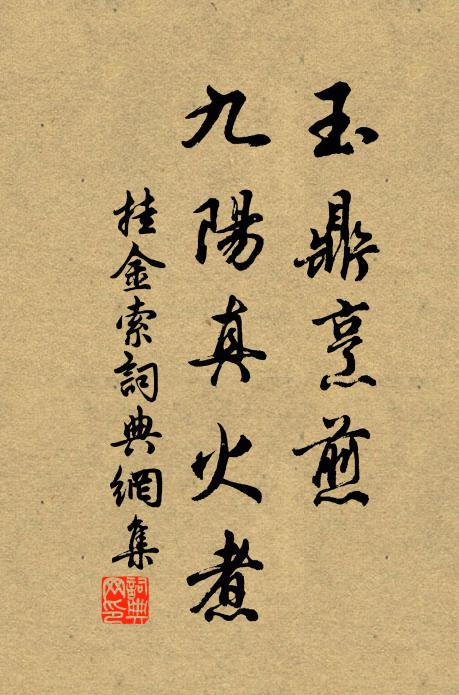 玉鼎烹煎
九陽真火煮
挂金索詞典網集
詞典网印